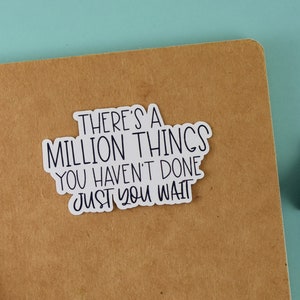 THERE'S A
MILLION THINGS
YOU HAVEN'T DONE
JUST YOU WAIT